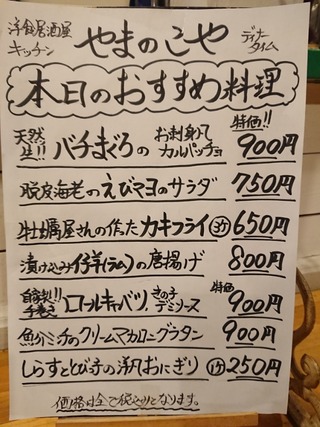 洋食居酒屋
キッチン
やまのこや
ディナー
タイム
本日のおすすめ料理
天然
生!! バチまぐろの お刺身orカルパッチョ 特価!! 900円
脱皮海老のえびマヨのサラダ 750円
牡蠣屋さんの作ったカキフライ 3ケ 650円
漬け込み仔羊(ラム)の唐揚げ 800円
自家製!!
手巻き ロールキャベツ,きの子デミソース 特価 900円
魚介ミチのクリームマカロニグラタン 900円
しらすととび子の洋風おにぎり 1ケ 250円
価格は全て税込りとなります。